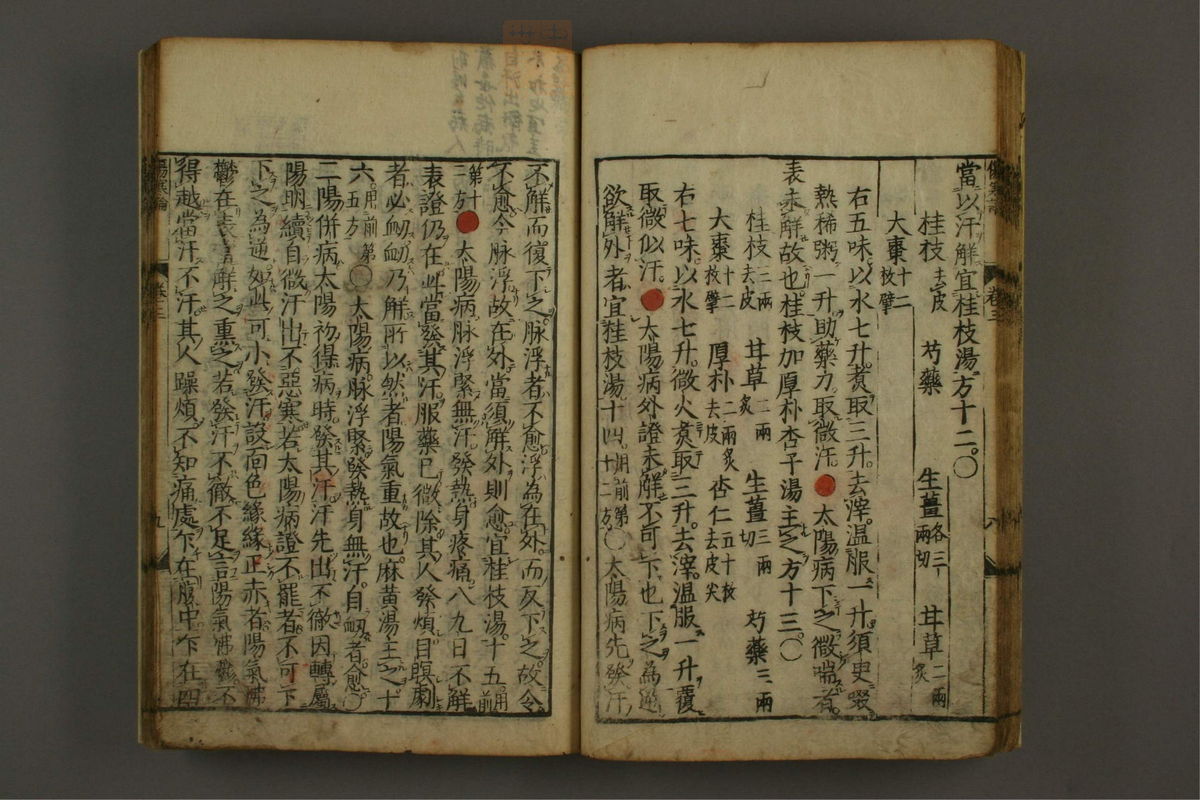 傷寒論 卷三 八
當以汗解宜桂枝湯方十二。〇
桂枝去皮 芍藥 生薑各三兩切 甘草二兩炙
大棗十二枚擘
右五味。以水七升。煮取三升。去滓。溫服一升。須臾啜
熱稀粥一升助藥力取微汗。●太陽病下之微喘者
表未解故也。桂枝加厚朴杏子湯主之方十三〇
桂枝三兩去皮 甘草二兩炙 生薑三兩切 芍藥三兩
大棗十二枚擘 厚朴二兩炙去皮 杏仁五十枚去皮尖
右七味。以水七升。微火煮取三升。去滓。溫服一升覆
取微似汗。●太陽病外證未解不可下也下之為逆
欲解外者宜桂枝湯十四。用前第十二方〇太陽病先發汗
不解而復下之。脉浮者不愈浮為在外。而反下之。故令
不愈今脉浮故在外當須解外則愈宜桂枝湯十五用前
第十二方●太陽病脉浮緊無汗。發熱身疼痛八九日不解
表證仍在此當發其汗。服藥已微除其人發煩目瞑劇
者必衂衂乃解所以然者陽氣重故也。麻黄湯主之。十
六。用前第五方〇太陽病。脉浮緊發熱。身無汗。自衂者愈。〇
二陽併病太陽初得病時。發其汗汗先出不徹因轉屬
陽明續自微汗出不惡寒若太陽病證不罷者不可下
下之為逆如此可小發汗設面色緣緣正赤者陽氣怫
鬱在表當解之熏之若發汗不徹不足言陽氣怫鬱不
得越當汗不汗其人躁煩不知痛處乍在腹中乍在四
傷寒論 卷三 九